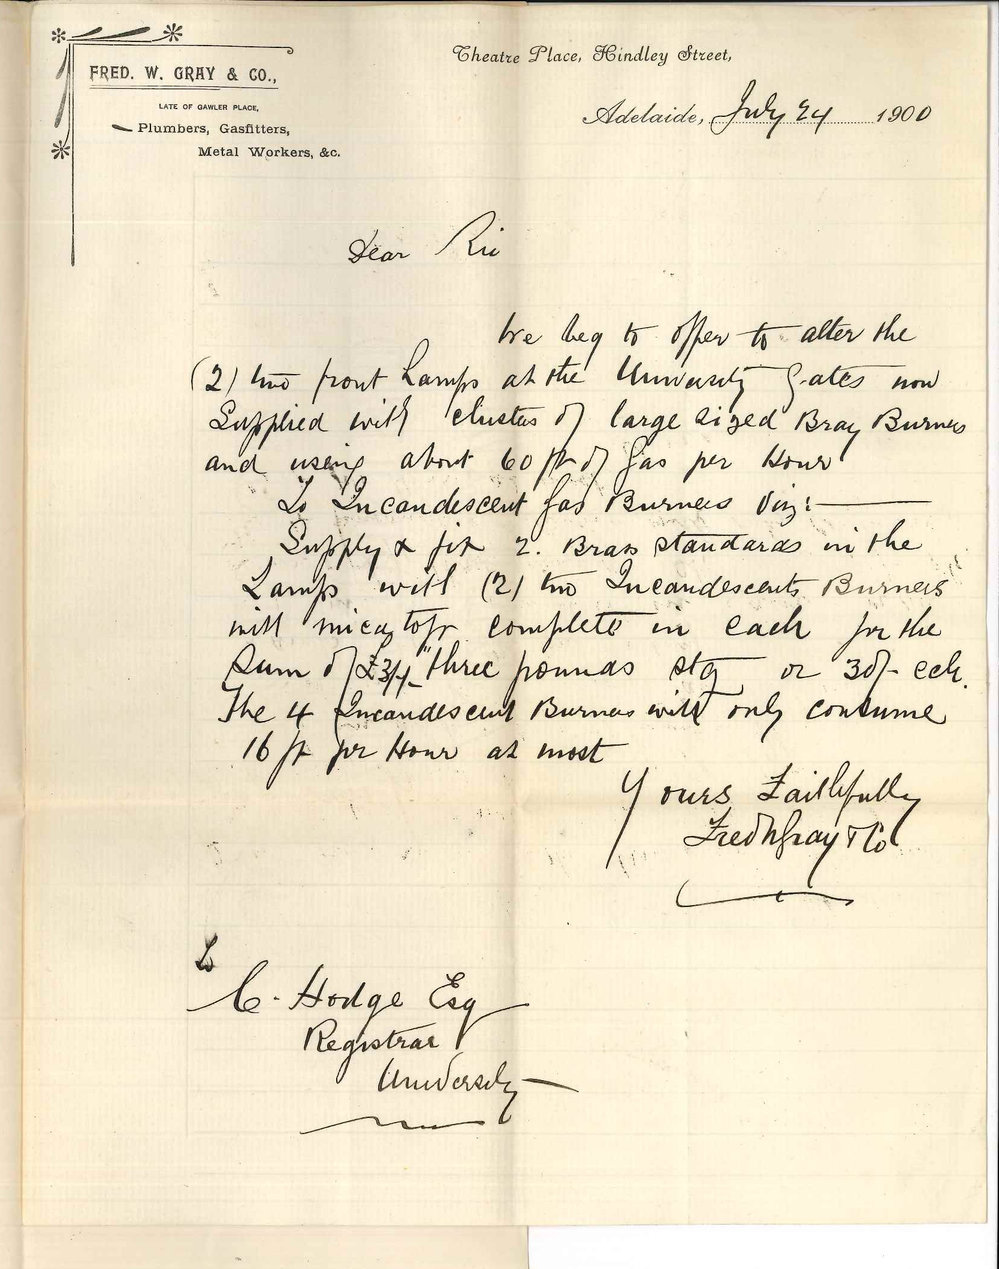 FRED. W. GRAY & CO.,
LATE OF GAWLER PLACE,
Plumbers, Gasfitters,
Metal Workers, &c.
Theatre Place, Hindley Street,
Adelaide, July 24 1900
Dear Sir
We beg to offer to alter the
(2) two front Lamps at the University Gates now
Supplied with clusters of large sized Bray Burners
and using about 60 ft of Gas per Hour
To Incandescent Gas Burners Viz:—
Supply & fix 2. Brass standards in the
Lamps with (2) two Incandescents Burners
with mica tops complete in each for the
Sum of £3/-/- "three pounds stg or 30/- ech.
The 4 Incandescent Burners will only consume
16 ft per Hour at most
Yours Faithfully
Fred W Gray & Co
To
C. Hodge Esq
Registrar
University